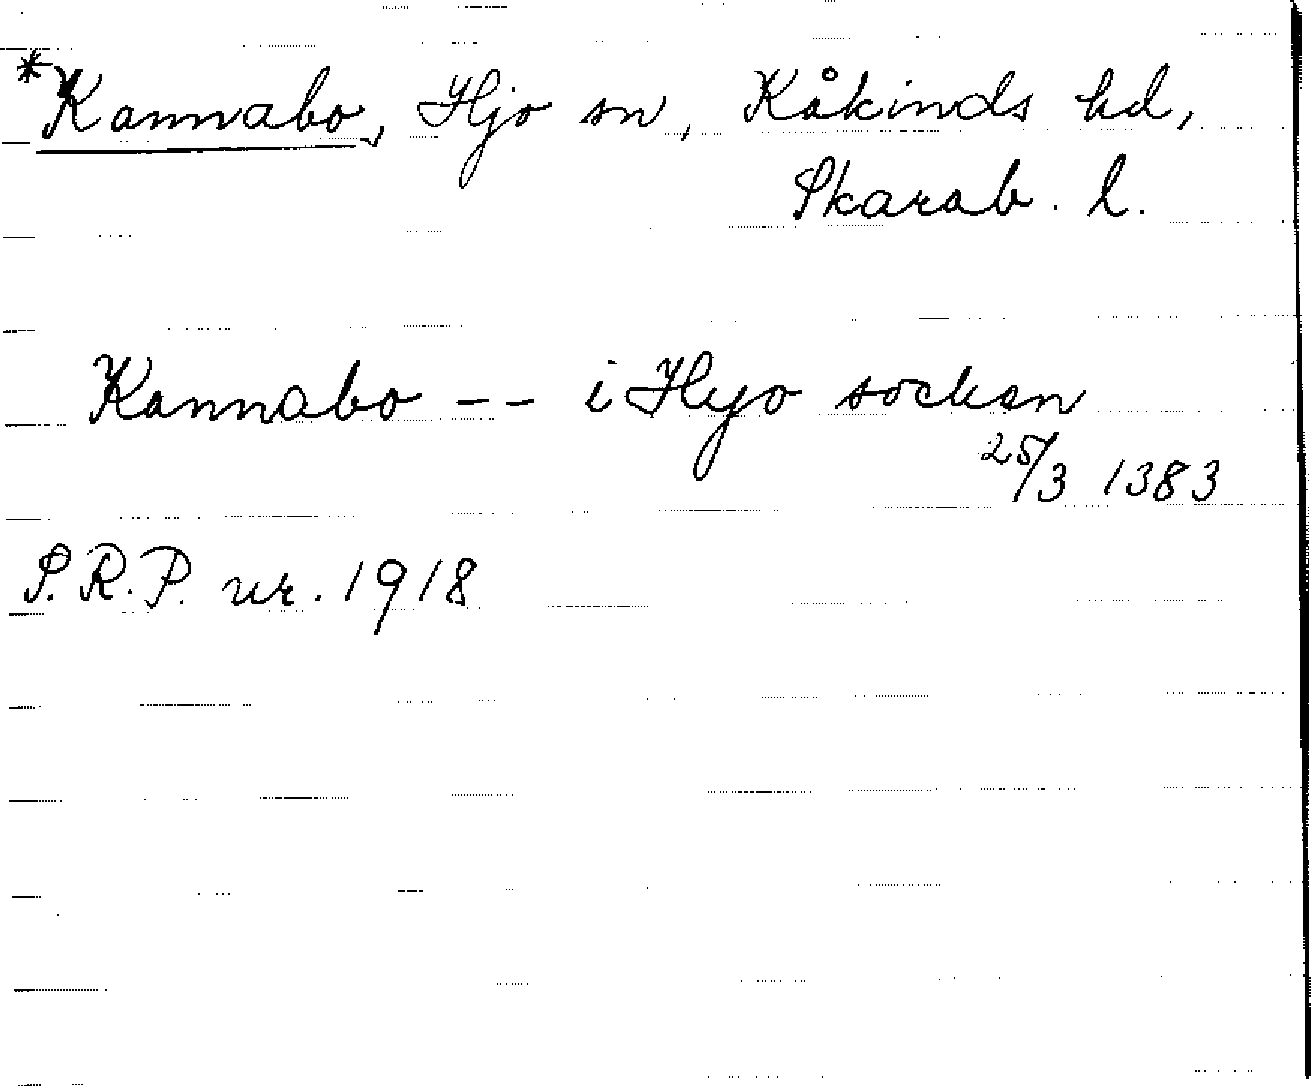 *Kannabo, Hjo sn, Kåkinds hd,
Skarab. l.
Kannabo -- i Hyo sockan
25/3 1383
S.R.P. nr. 1918